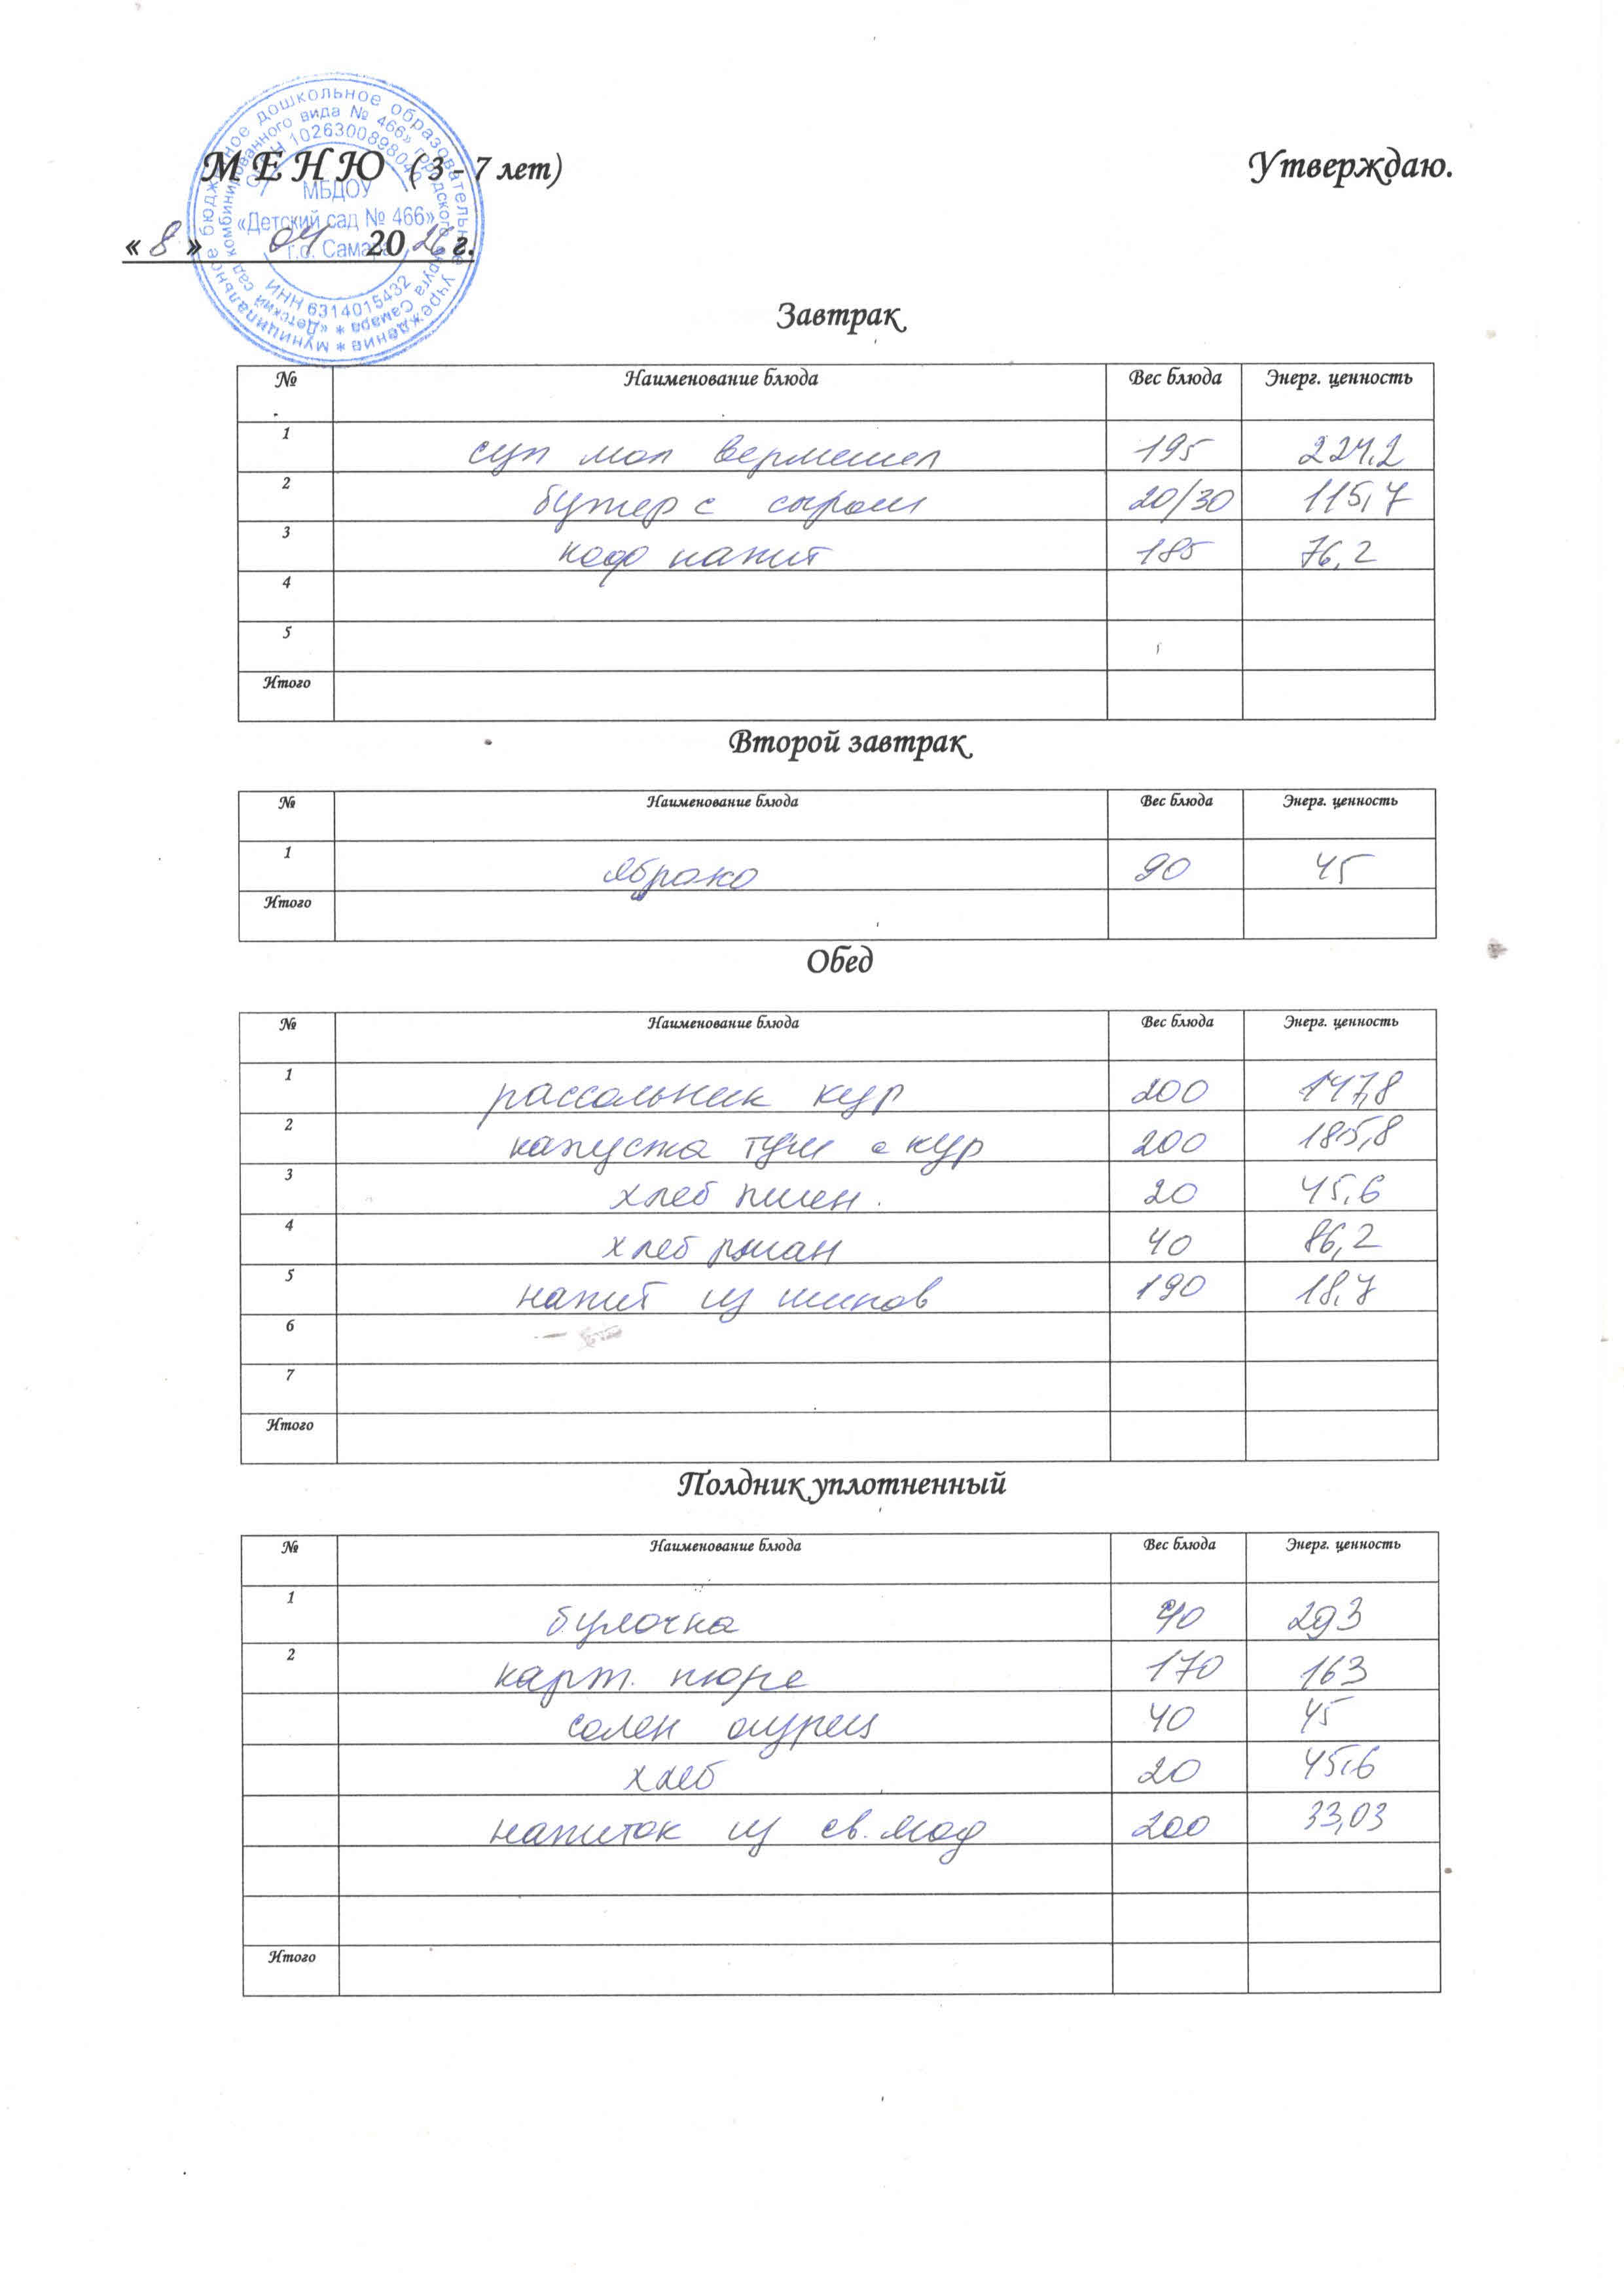 МЕНЮ (3 - 7 лет) Утверждаю.
« 8 » 04 20 26 г.
муниципальное бюджетное дошкольное образовательное учреждение
«Детский сад комбинированного вида № 466» городского округа Самара
МБДОУ
«Детский сад № 466»
г.о. Самара
ИНН 6314015432
Завтрак
№ Наименование блюда Вес блюда Энерг. ценность
1 суп мол вермешел 195 224,2
2 бутер с сыром 20/30 115,7
3 коф напит 185 76,2
4
5
Итого
Второй завтрак
№ Наименование блюда Вес блюда Энерг. ценность
1 яблоко 90 45
Итого
Обед
№ Наименование блюда Вес блюда Энерг. ценность
1 рассольник кур 200 147,8
2 капуста туш с кур 200 185,8
3 хлеб пшен. 20 45,6
4 хлеб ржан 40 86,2
5 напит из шипов 190 18,7
6
7
Итого
Полдник уплотненный
№ Наименование блюда Вес блюда Энерг. ценность
1 булочка 293
2 карт. пюре 170 163
солен огурец 40 45
хлеб 20 45,6
напиток из св. 200 33,03
Итого